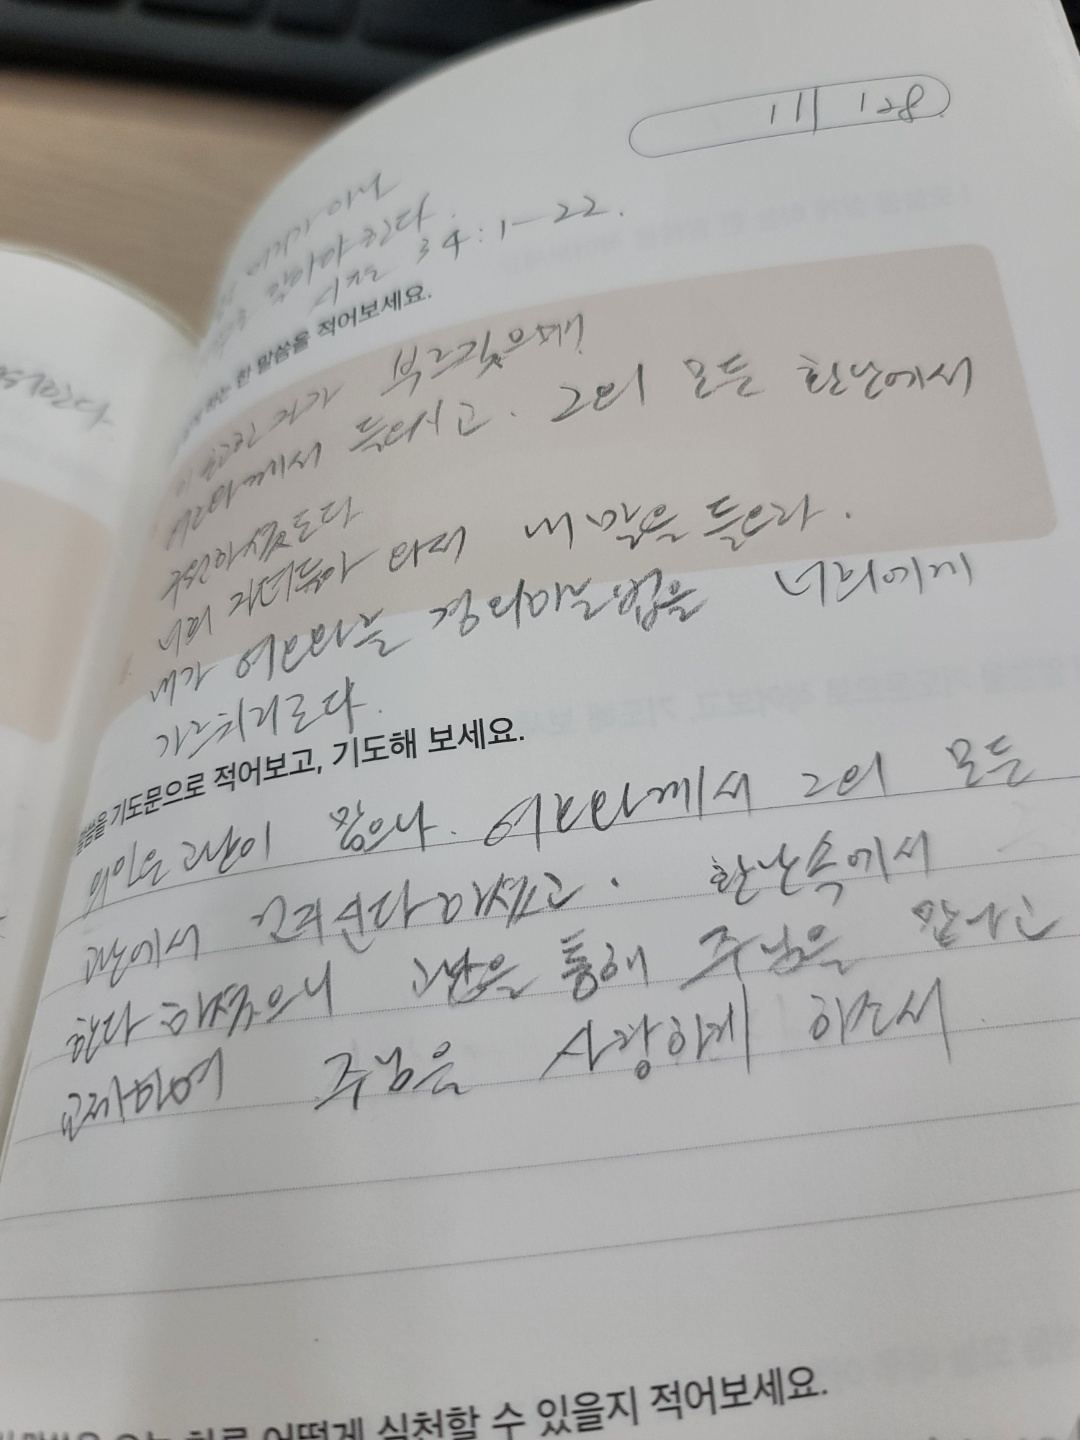 111 128
여기가 아니
찾아야 한다.
시편 34:1-22.
하는 한 말씀을 적어보세요.
이 곤고한 자가 부르짖으매
여호와께서 들으시고. 그의 모든 환난에서
구원하셨도다
너희 자녀들아 와서 내 말을 들으라.
내가 여호와를 경외하는 법을 너희에게
가르치리로다.
말씀을 기도문으로 적어보고, 기도해 보세요.
의인은 고난이 많으나. 여호와께서 그의 모든
고난에서 건지신다 하셨고. 환난속에서
한다 하셨으니 고난을 통해 주님을 만나고
교제하여 주님은 사랑하게 하소서.
오늘 하루 어떻게 실천할 수 있을지 적어보세요.